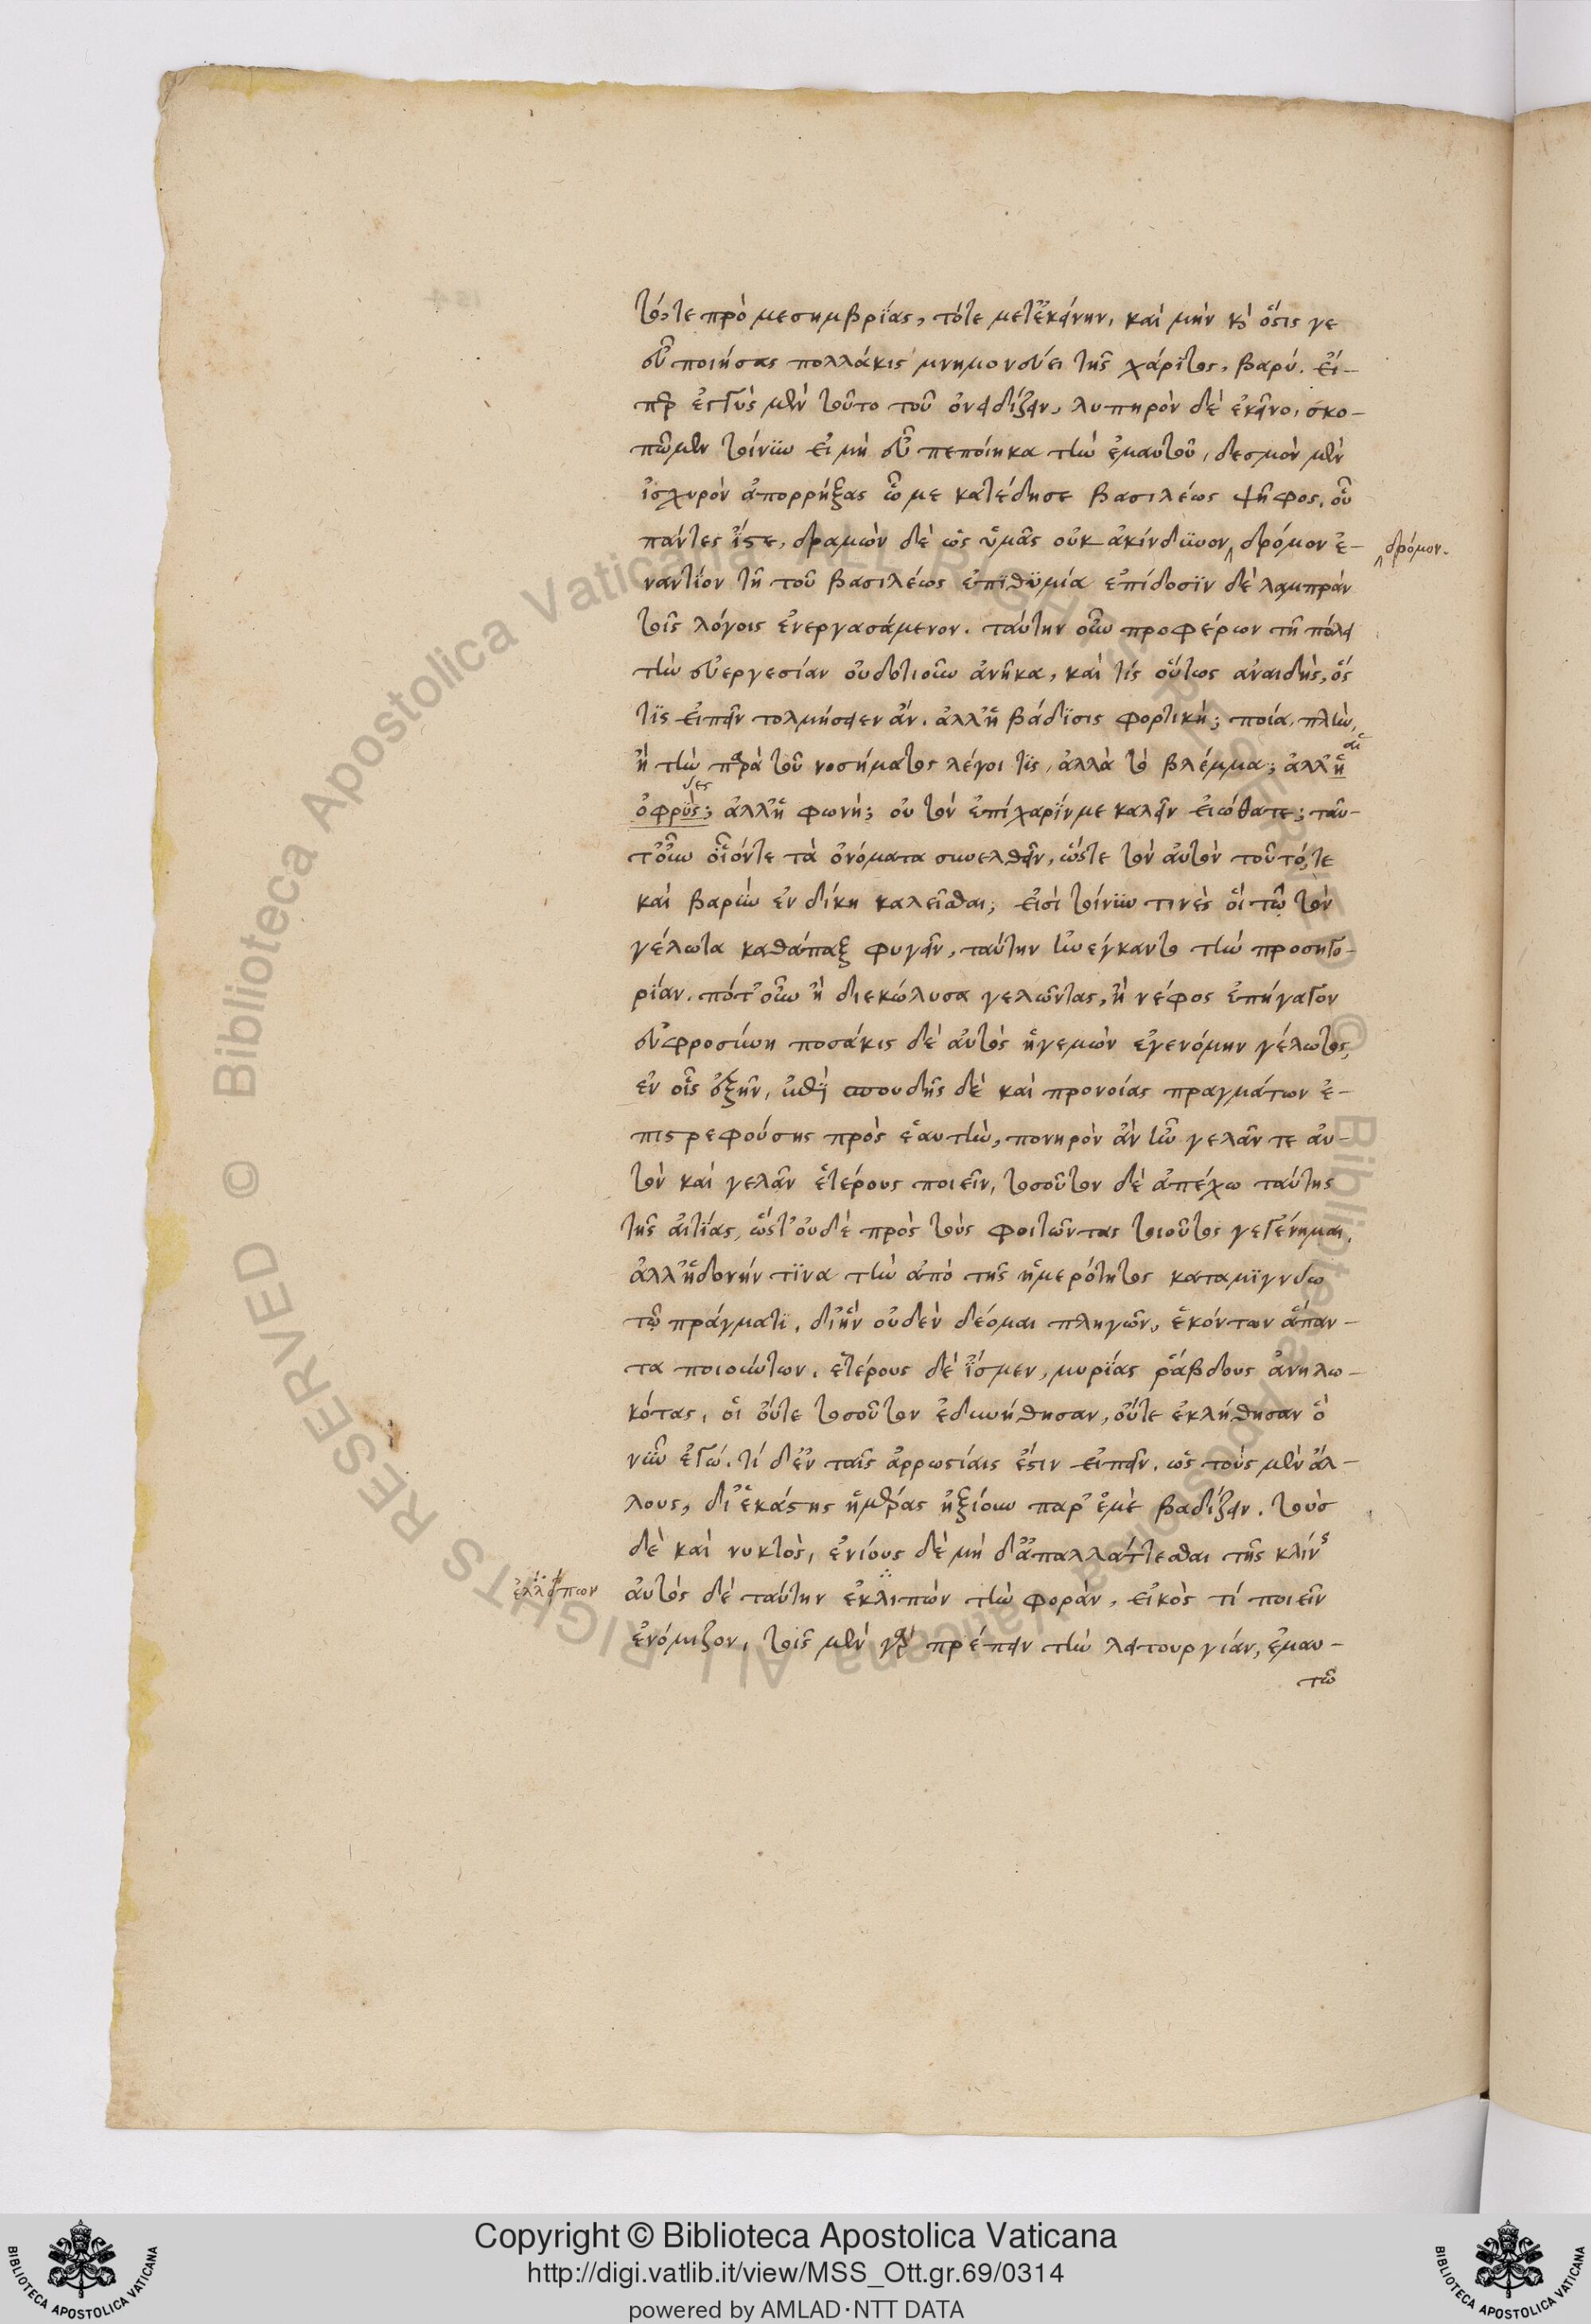 τό,τε πρὸ μεσημβρίας, τό,τε μετ' ἐκείνην. καὶ μὴν καὶ ὅστις γε
εὖ ποιήσας πολλάκις μνημονεύει τῆς χάριτος, βαρύ. εἴ-
περ ἐγγὺς μὲν τοῦτο τοῦ ὀνειδίζειν, λυπηρὸν δὲ ἐκεῖνο. σκο-
πῶμεν τοίνυν εἰ μὴ εὖ πεποίηκα τὴν ἐμαυτοῦ, δεσμὸν μὲν
ἰσχυρὸν ἀπορρήξας ὧ με κατέδησε βασιλέως ψῆφος. οὗ
πάντες ἴστε, δραμὼν δὲ ὡς ὑμᾶς οὐκ ἀκίνδυνον δρόμον ἐ-
δρόμον.
ναντίον τῇ τοῦ βασιλέως ἐπιθυμία ἐπίδοσιν δὲ λαμπρὰν
τοῖς λόγοις ἐνεργασάμενον. ταύτην οὖν προφέρων τῇ πόλει
τὴν εὐεργεσίαν οὐδοτιοῦν ἀνῆκα, καὶ τίς οὕτως ἀναιδὴς, ὅς
τις εἰπεῖν τολμήσειεν ἄν. ἀλλ' ἡ βάδισις φορτική; ποία, πλὴν,
ἢ τὴν παρὰ τοῦ νοσήματος λέγοι τις, ἀλλὰ τὸ βλέμμα; ἀλλ' ἡ
αἱ
ύες
ὀφρὺς; ἀλλ' ἡ φωνή; οὐ τὸν ἐπίχαρίν με καλεῖν εἰώθατε; ταῦ-
τ' οὖν οἷόντε τὰ ὀνόματα συνελθεῖν, ὥστε τὸν αὐτὸν τοῦτό,τε
καὶ βαρὺν ἐν δίκη καλεῖσθαι; εἰσὶ τοίνυν τινὲς οἳ τῷ τὸν
γέλωτα καθάπαξ φυγεῖν, ταύτην ἠνέγκαντο τὴν προσηγο-
ρίαν. πότ' οὖν ἢ διεκώλυσα γελῶντας, ἢ νέφος ἐπήγαγον
εὐφροσύνη ποσάκις δὲ αὐτὸς ἡγεμὼν ἐγενόμην γέλωτος,
ἐν οἷς ἐξῆν, ἐπεὶ σπουδῆς δὲ καὶ προνοίας πραγμάτων ἐ-
πιστρεφούσης πρὸς ἑαυτὴν, πονηρὸν ἂν ἦν γελᾶν τε αὐ-
τὸν καὶ γελᾶν ἑτέρους ποιεῖν, τοσοῦτον δὲ ἀπέχω ταύτης
τῆς αἰτίας, ὥστ' οὐδὲ πρὸς τοὺς φοιτῶντας τοιοῦτος γεγένημαι.
ἀλλ' ἡδονήν τινα τὴν ἀπὸ τῆς ἡμερότητος καταμίγνυω
τῷ πράγματι, δι' ἣν οὐδὲν δέομαι πληγῶν, ἑκόντων ἅπαν-
τα ποιούντων. ἑτέρους δὲ ἴσμεν, μυρίας ῥάβδους ἀνηλω-
κότας, οἳ οὔτε τοσοῦτον ἐδυνήθησαν, οὔτε ἐκλήθησαν ὃ
νῦν ἐγώ. τί δ' ἐν ταῖς ἀρρωστίαις ἔστιν εἰπεῖν. ὡς τοὺς μὲν ἄλ-
λους, δι' ἑκάστης ἡμέρας ἠξίουν παρ' ἐμὲ βαδίζειν. τοὺς
δὲ καὶ νυκτὸς, ἐνίους δὲ μὴ δ' ἀπαλλάττεσθαι τῆς κλίνης
ἐλλείπων
αὐτὸς δὲ ταύτην ἐκλιπὼν τὴν φορὰν, εἰκὸς τί ποιεῖν
ἐνόμιζον. τοῖς μὲν γὰρ πρέπειν τὴν λειτουργίαν, ἐμαυ-
τῷ
Biblioteca Apostolica Vaticana ALL RIGHTS RESERVED ©
Copyright © Biblioteca Apostolica Vaticana
http://digi.vatlib.it/view/MSS_Ott.gr.69/0314
powered by AMLAD·NTT DATA
BIBLIOTECA APOSTOLICA VATICANA
BIBLIOTECA APOSTOLICA VATICANA